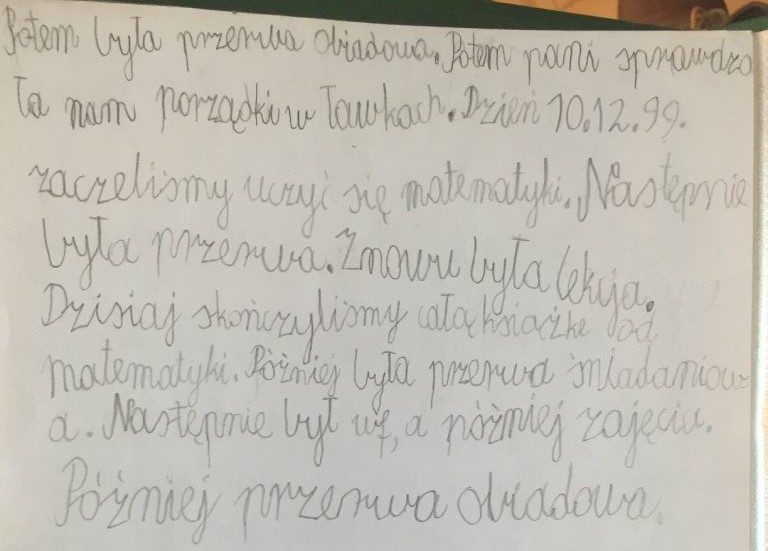 Potem była przerwa obiadowa. Potem pani sprawdzo
ła nam porządki w ławkach. Dzień 10.12.99.
zaczeliśmy uczyć się matematyki. Następnie
była przerwa. Znowu była lekcja.
Dzisiaj skończyliśmy całą książke od
matematyki. Później była przerwa śniadaniow
a. Następnie był wf, a później zajęcia.
Później przerwa obiadowa.